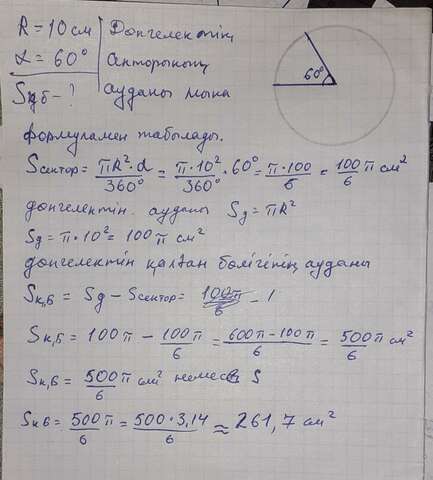 R = 10 см Дөнгелектің
α = 60° секторының
Sқ,б - ? ауданы мына
60°
формуламен табылады.
Sсектор = πR²·α/360° = π·10²/360° · 60° = π·100/6 = 100π/6 см²
дөнгелектің ауданы Sд = πR²
Sд = π·10² = 100π см²
дөнгелектің қалған бөлігінің ауданы
Sқ,б = Sд - Sсектор =
Sқ,б = 100π - 100π/6 = 600π-100π/6 = 500π/6 см²
Sқ,б = 500π/6 см² немесе S
Sқб = 500π/6 = 500·3,14/6 ≈ 261,7 см²